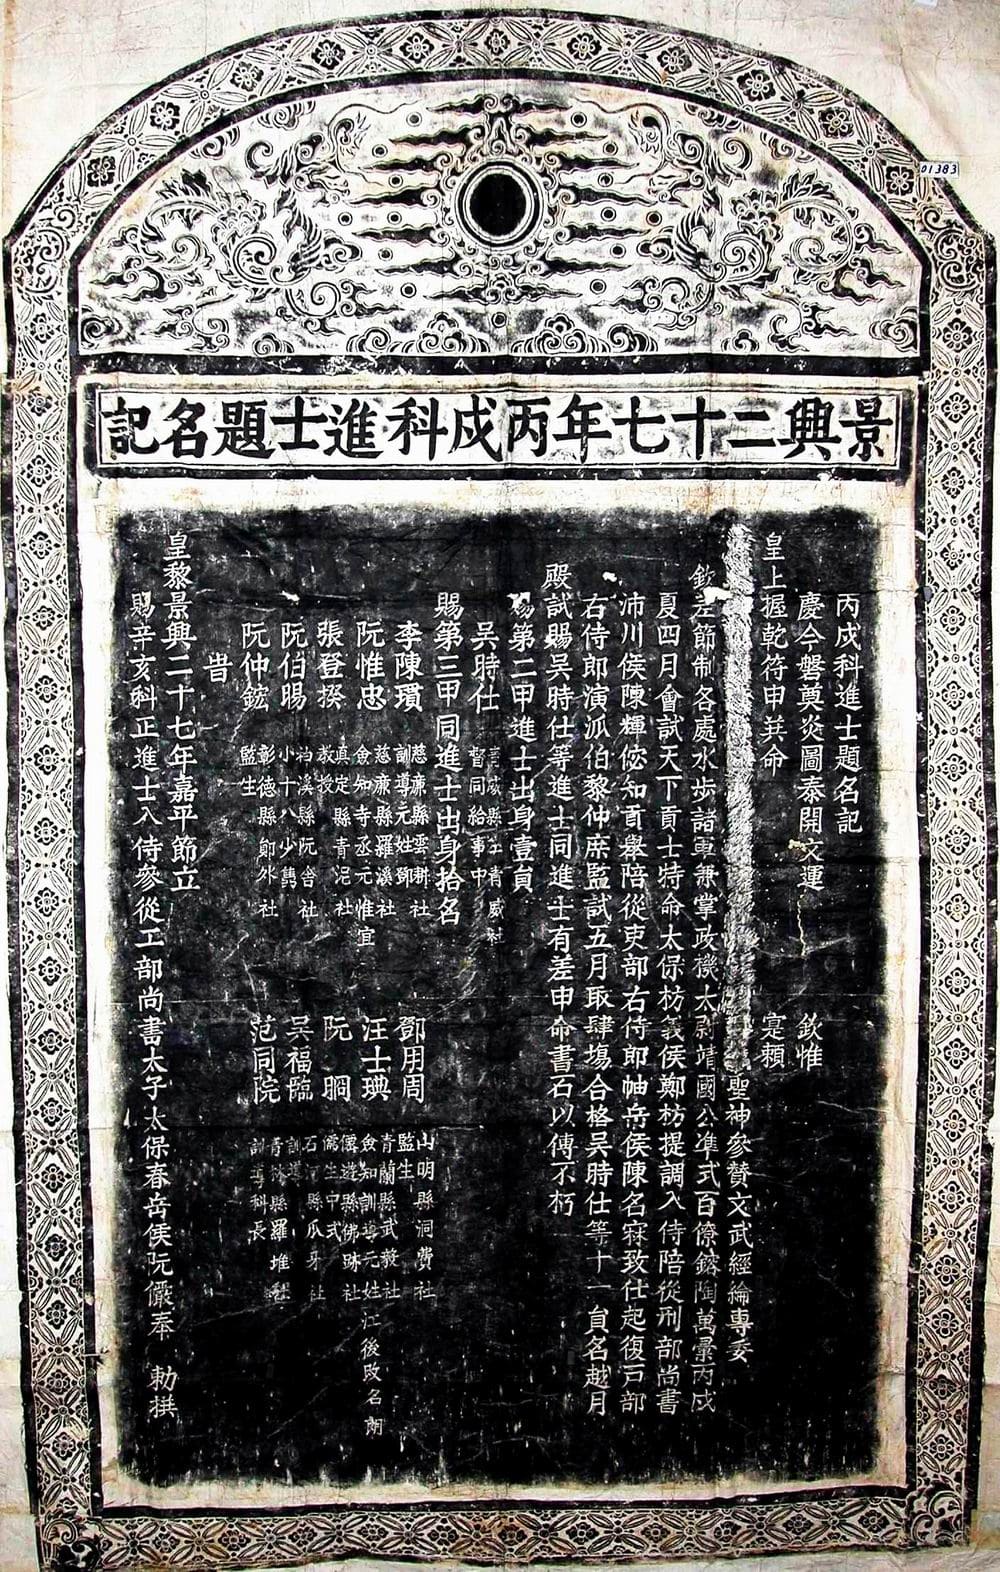 01383
景興二十七年丙戌科進士題名記
丙戌科進士題名記
慶今磐奠炎圖泰開文運 欽惟
皇上握乾符申其命 寔賴
聖神參贊文武經綸專委
欽差節制各處水步諸軍兼掌政機太尉靖國公準式百僚鎔陶萬彙丙戌
夏四月會試天下貢士特命太保枋義侯鄭枋提調入侍陪從刑部尚書
沛川侯陳輝倊知貢舉陪從吏部右侍郎岫岳侯陳名寀致仕起復戸部
右侍郎演派伯黎仲庶監試五月取肆塲合格吳時仕等十一員名越月
殿試賜吳時仕等進士同進士有差申命書石以傳不朽
賜第二甲進士出身壹員
吳時仕 青威縣左青威社
督同給事中
賜第三甲同進士出身拾名
李陳瑻 慈廉縣雲耕社
訓導元姓鄧
鄧用周 山明縣洞費社
監生
阮惟忠 慈廉縣羅溪社
僉知寺丞元惟宜
汪士琠 青蘭縣武 社
僉知訓導元姓江後改名朗
張登揆 真定縣青泥社
教授
阮㵮 僊遊縣佛跡社
儒生中式
阮伯暘 桕溪縣阮舍社
小十八少雋
吳福臨 石河縣瓜牙社
訓導
阮仲鋐 彰德縣鄖外社
監生
范同院 青林縣羅堆社
訓導科長
旹
皇黎景興二十七年嘉平節立
賜辛亥科正進士入侍參從工部尚書太子太保春岳侯阮儼奉 勅撰